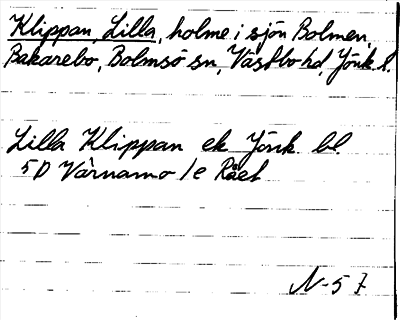 Klippan, Lilla, holme i sjön Bolmen,
Bakarebo, Bolmsö sn, Västbo hd, Jönk. l.
Lilla Klippan ek Jönk. bl.
5D Värnamo 1e Rået
N-57